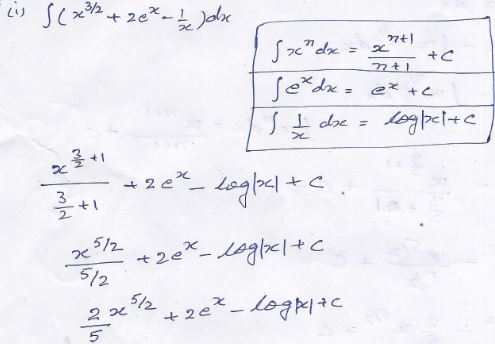 (i) ∫(x^{3/2} + 2e^x - 1/x)dx
∫x^n dx = x^{n+1}/(n+1) + c
∫e^x dx = e^x + c
∫ 1/x dx = log|x| + c
x^{3/2 + 1}/(3/2 + 1) + 2e^x - log|x| + c .
x^{5/2}/(5/2) + 2e^x - log|x| + c
2/5 x^{5/2} + 2e^x - log|x| + c